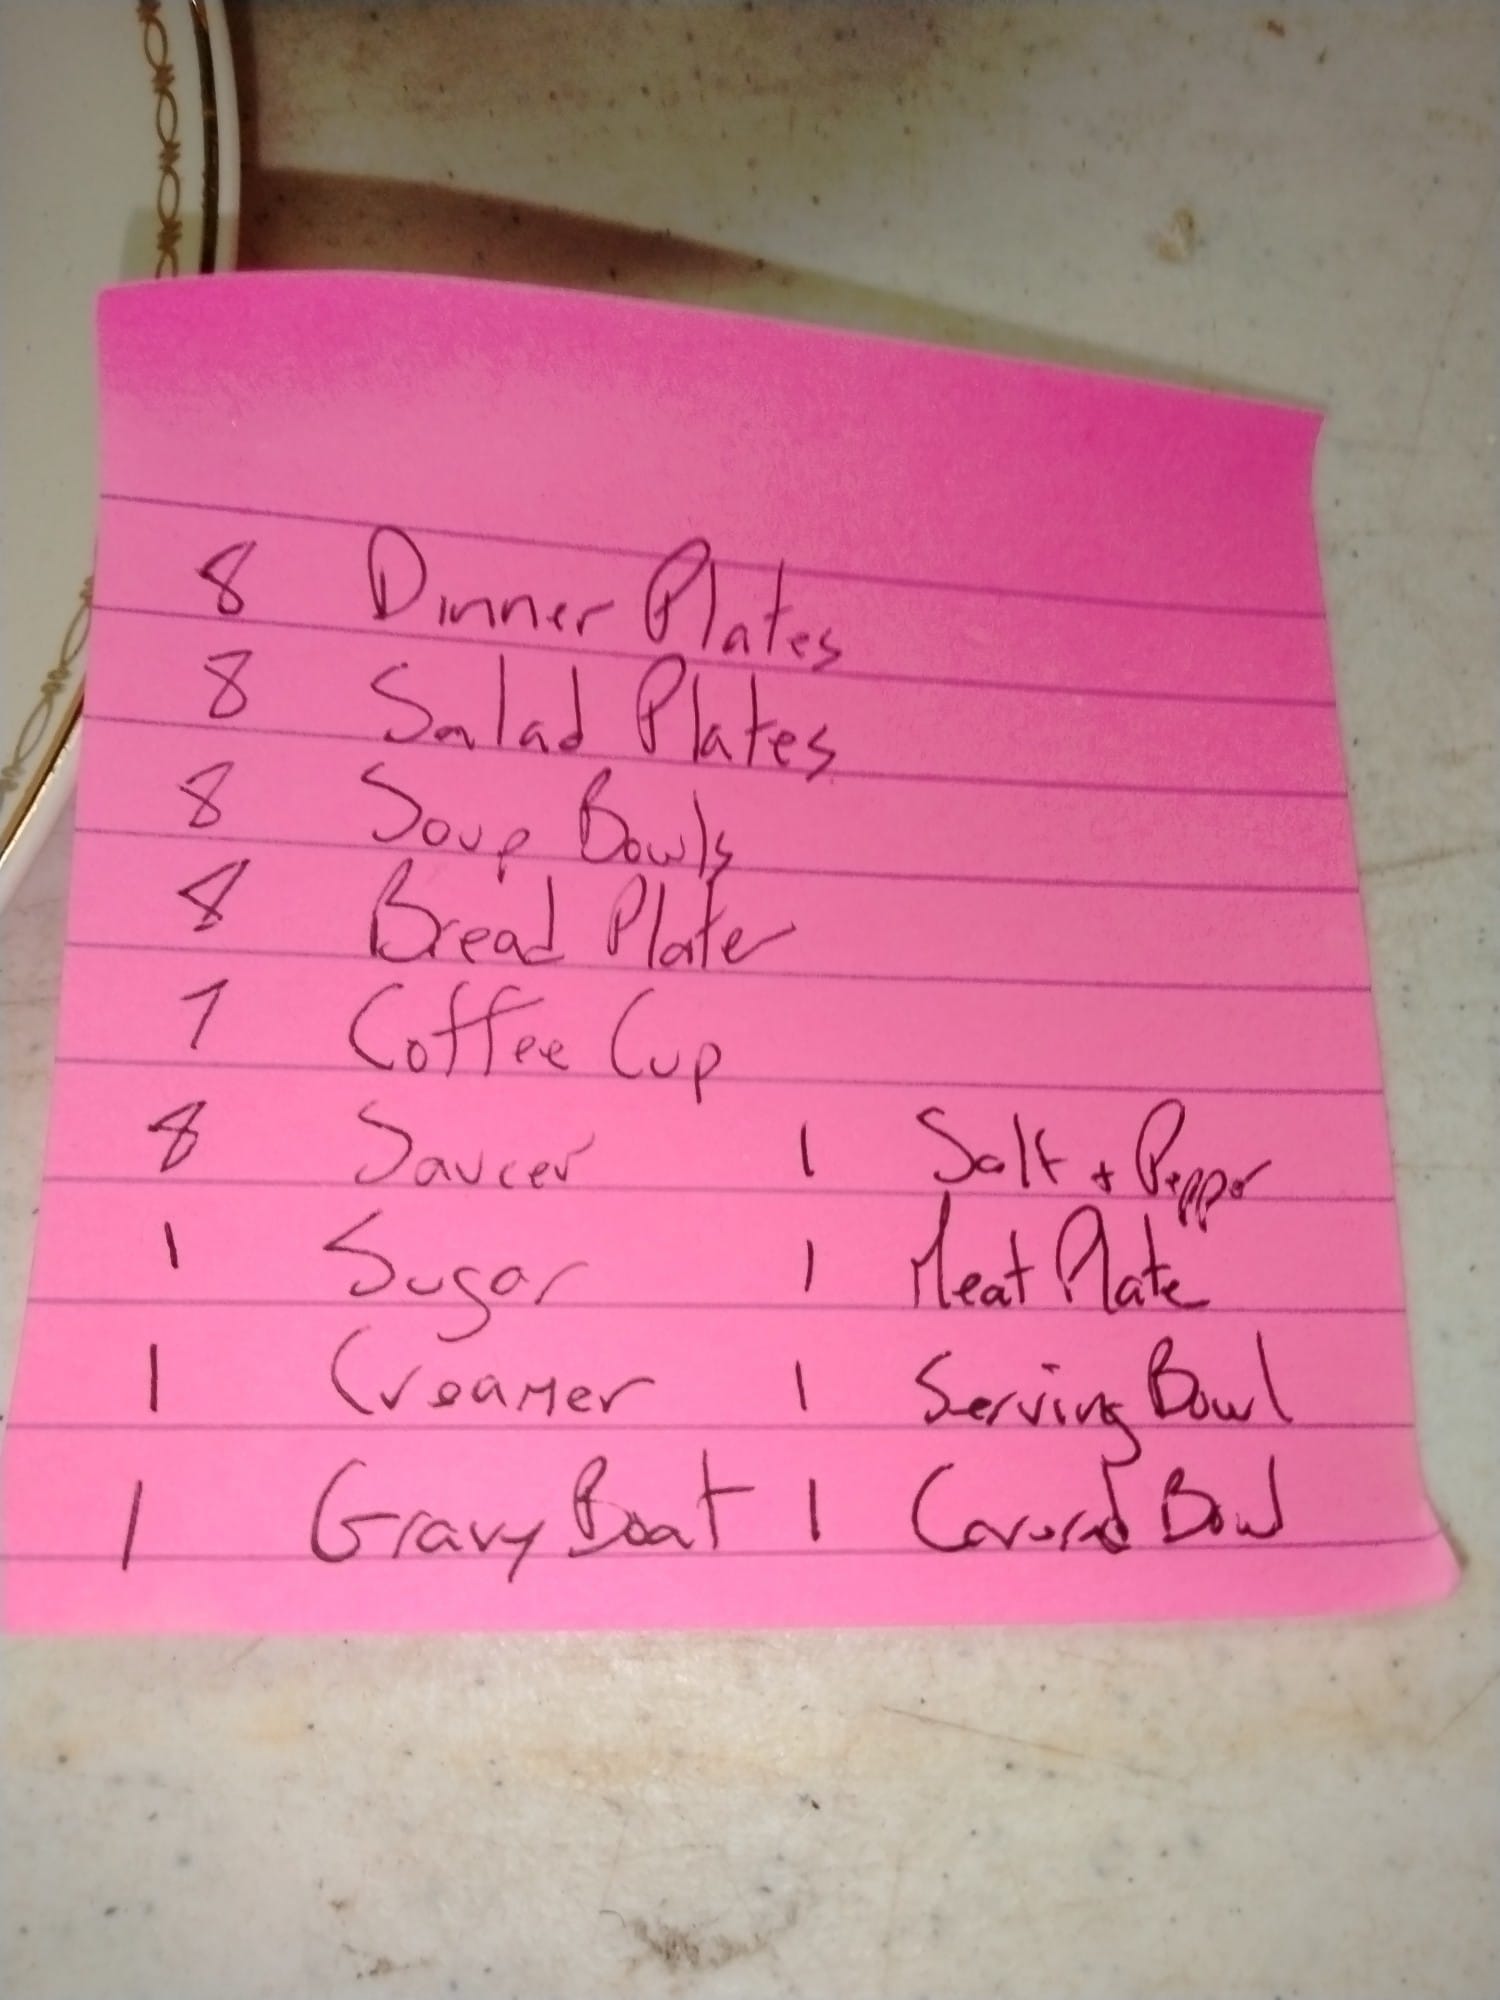 8 Dinner Plates
8 Salad Plates
8 Soup Bowls
8 Bread Plate
7 Coffee Cup
8 Saucer 1 Salt + Pepper
1 Sugar 1 Meat Plate
1 Creamer 1 Serving Bowl
1 Gravy Boat 1 Covered Bowl